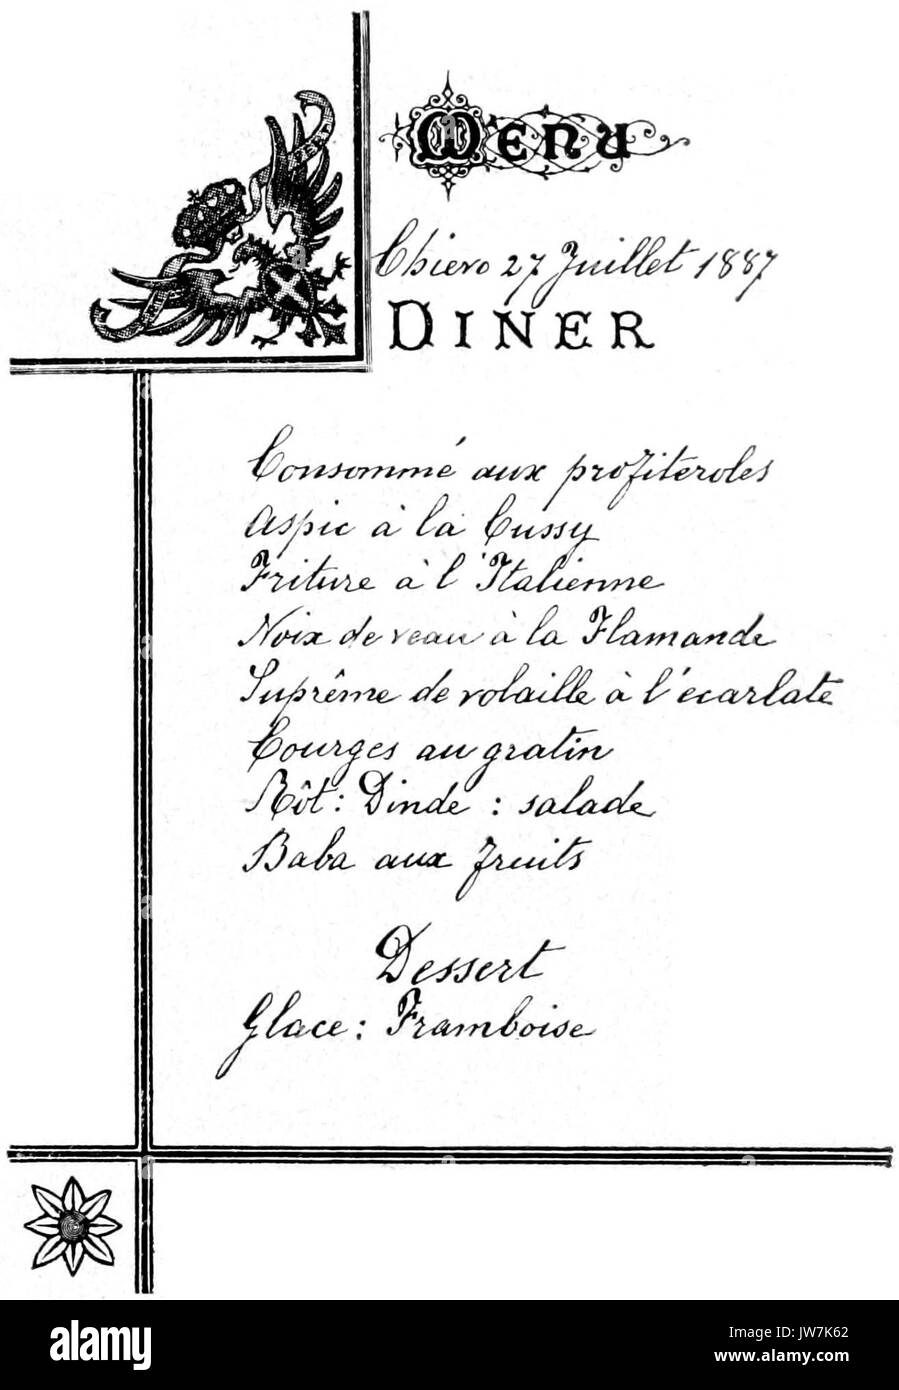 Menu
Chiero 27 Juillet 1887
DINER
Consommé aux profiteroles
Aspic à la Cussy
Friture à l'Italienne
Noix de veau à la Flamande
Suprême de volaille à l'écarlate
Courges au gratin
Rôt: Dinde: salade
Baba aux fruits
Dessert
Glace: Framboise
alamy stock photo
JW7K62
www.alamy.com